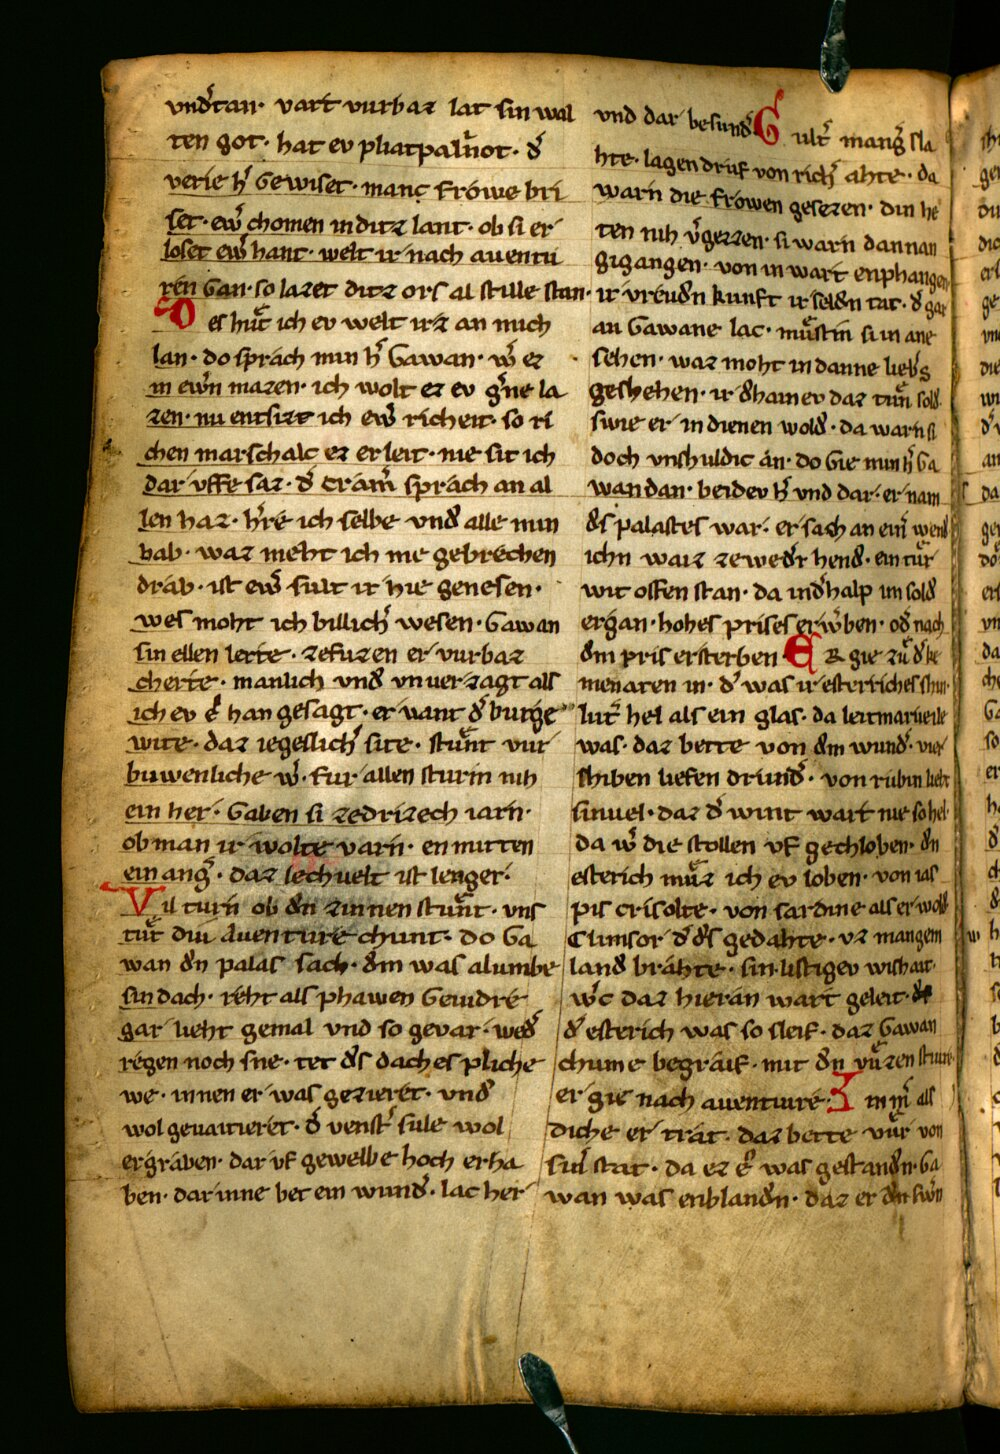 vndͤtan· vart vurbaz lat sin wal
ten got· hat ev pliatpalinot· dͤ
verie hͤ Gewiset· manc frowe bri
set· ewͤ chomen in ditz lant· ob si er
loset ewͤ hant· welt ir nach auentu
ren Gan· so lazet ditz ors al stille stan·
Des huͤt ich ev welt irz an mich
lan· do sprach min hͤ Gawan· wͤ ez
in ewͤn mazen· ich wolt ez ev gͤne la
zen· nu entsitze ich ewͤ richeit· so ri
chen marschalc ez erleit· nie sit ich
dar vffe saz· dͤ cramͤ sprach an al
len haz· hͤre ich selbe vnd alle min
hab· waz meht ich me gebrechen
drab· ist ewͤ sult ir hie genesen·
wes moht ich billichͤ wesen· Gawan
sin ellen lerte· zefuzen er vurbaz
cherte· manlich vnd vnverzagt als
ich ev ͤe han gesagt· er vant dͤ burge
wite· daz iegeslichͤ site· stuͤnt mit
buwenliche wͤ· fur allen sturm niht
ein her· Gaben si zedrizech iarn·
ob man ir wolte varn· en mitten
ein angͤ· daz lechuelt ist lenger·
Vil turn ob dͤn zinnen stuͤnt· vns
tuͤt diu Auenture chunt· do Ga
wan dͤn palas sach· dͤm was alumbe
sin dach· reht als phawen Geuidre
gar lieht gemal vnd so gevar· wedͤ
regen noch sne· tet dͤs daches pliche
we· innen er was gezieret· vnd
wol geuaitieret· dͤ venstͤ sule wol
ergraben· dar vf gewelbe hoch erha
ben· dar inne bet ein wundͤ· lac her
vnd dar besundͤ Gultͤ mangͤ sla
hte· lagen druf von richͤ ahte· da
warn die frowen gesezen· din he
ten niht vͤgezzen· si warn dannan
gigangen· von in wart enphangen
ir vreudͤn kunft ir seldͤn tac· dͤ gar
an Gawane lac· muͤstin si in ane
sehen· waz moht in danne liebͤs
geshehen· ir dͤhainev daz tuͤn sold
swie er in dienen woldͤ· da warn si
doch vnshuldic an· do Gie min hͤ Ga
wan dan· beidev hͤ vnd dar· er nam
dͤs palastes war· er sach an einͤ wend
ichn waiz zewedͤr hendͤ· ein tuͤr
wit offen stan· da indͤhalp im soldͤ
ergan· hohes prises erwͤben· odͤ nach
dͤm pris ersterben· ER gie zuͤ dͤ ke
menaten in· dͤ was ir esterriches shin·
lutͤ hel als ein glas· da leitmarueile
was· daz bette von dͤm wundͤ· vier
shiben liefen drundͤ· von rubin lieht
sinuel· daz dͤ wint wart nie so hel·
da wͤ die stollen vf gechloben· dͤn
esterich muͤz ich ev loben· von ias
pis crisolte· von sardine als er wold
Clinsor dͤ dͤs gedahte· vz mangem
landͤ brahte· sin listigev wishait·
wͤc daz hieran wart geleit·
dͤ esterich was so sleif· daz Gawan
chume begraif· mit dͤn vuͤzen stiure·
er gie nach auentiure· Immͤ als
diche er trat· daz bette vuͤr von
sinͤ stat· da ez ͤe was gestandͤn· Ga
wan was enblandͤn· daz er dͤn swͤn